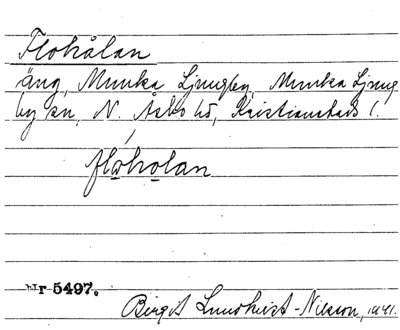 Flohålan
äng, Munka Ljungby, Munka Ljung
by sn, N. Åsbo hd, Kristianstads l.
flo̱ho̱lan
Nr 5497.
Birgit Lundkvist-Nilsson, 1941.